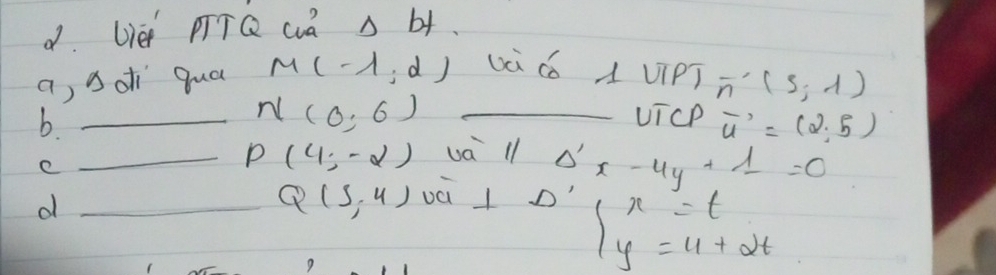 2. Viết PTTQ của Δ bt.
a, Δ đi qua M(-1; 2) và có 1 VTPT n→(5; 1)
b. ______ N(0; 6) ______ VTCP u→ = (2; 5)
c ______ P(4; -2) và // Δ' x - 4y + 1 = 0
d ______ Q(5; 4) và ⊥ Δ' { x = t
y = 4 + 2t